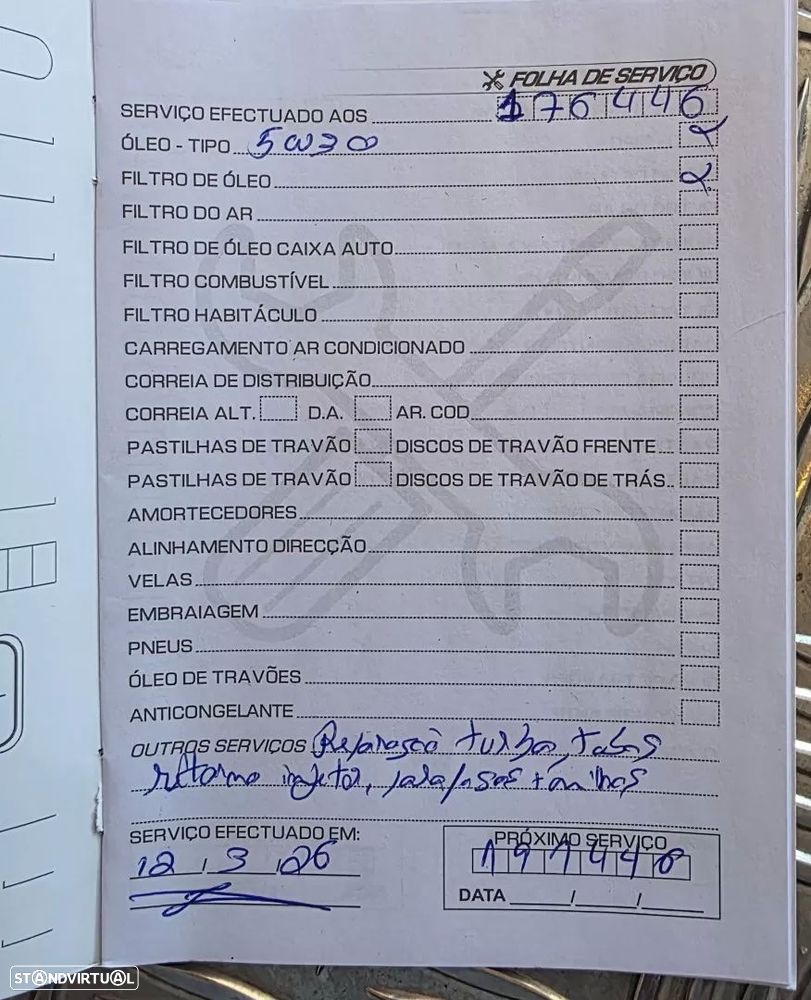 FOLHA DE SERVIÇO
SERVIÇO EFECTUADO AOS 176446
ÓLEO - TIPO 5W30
FILTRO DE ÓLEO
FILTRO DO AR
FILTRO DE ÓLEO CAIXA AUTO
FILTRO COMBUSTÍVEL
FILTRO HABITÁCULO
CARREGAMENTO AR CONDICIONADO
CORREIA DE DISTRIBUIÇÃO
CORREIA ALT. D.A. AR. COD
PASTILHAS DE TRAVÃO DISCOS DE TRAVÃO FRENTE
PASTILHAS DE TRAVÃO DISCOS DE TRAVÃO DE TRÁS
AMORTECEDORES
ALINHAMENTO DIRECÇÃO
VELAS
EMBRAIAGEM
PNEUS
ÓLEO DE TRAVÕES
ANTICONGELANTE
OUTROS SERVIÇOS Reparação turbo, tubos
retorno injetor, parafusos + anilhas
SERVIÇO EFECTUADO EM:
12, 3, 26
PRÓXIMO SERVIÇO
191446
DATA / /
STANDVIRTUAL